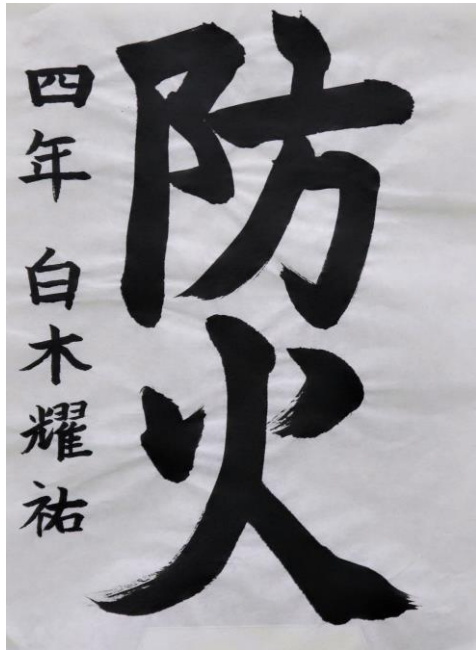 防火
四年 白木耀祐